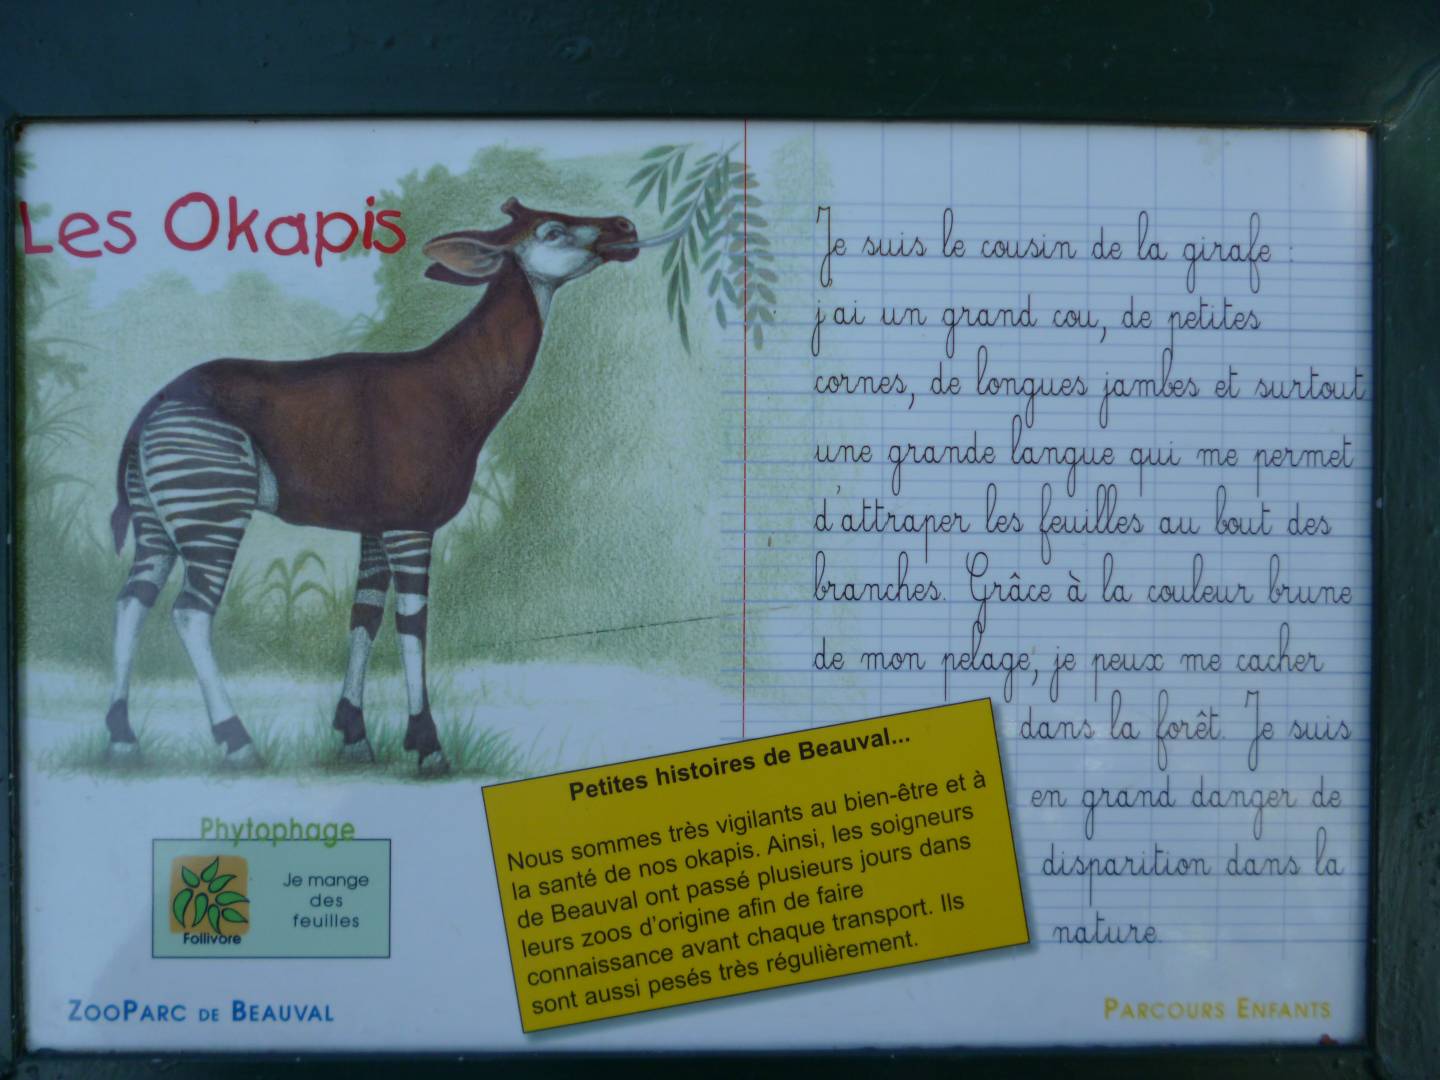 Les Okapis
Je suis le cousin de la girafe :
j'ai un grand cou, de petites
cornes, de longues jambes et surtout
une grande langue qui me permet
d'attraper les feuilles au bout des
branches. Grâce à la couleur brune
de mon pelage, je peux me cacher
dans la forêt. Je suis
en grand danger de
disparition dans la
nature.
Petites histoires de Beauval...
Nous sommes très vigilants au bien-être et à
la santé de nos okapis. Ainsi, les soigneurs
de Beauval ont passé plusieurs jours dans
leurs zoos d'origine afin de faire
connaissance avant chaque transport. Ils
sont aussi pesés très régulièrement.
Phytophage
Je mange
des
feuilles
Follivore
ZooParc de Beauval
Parcours Enfants